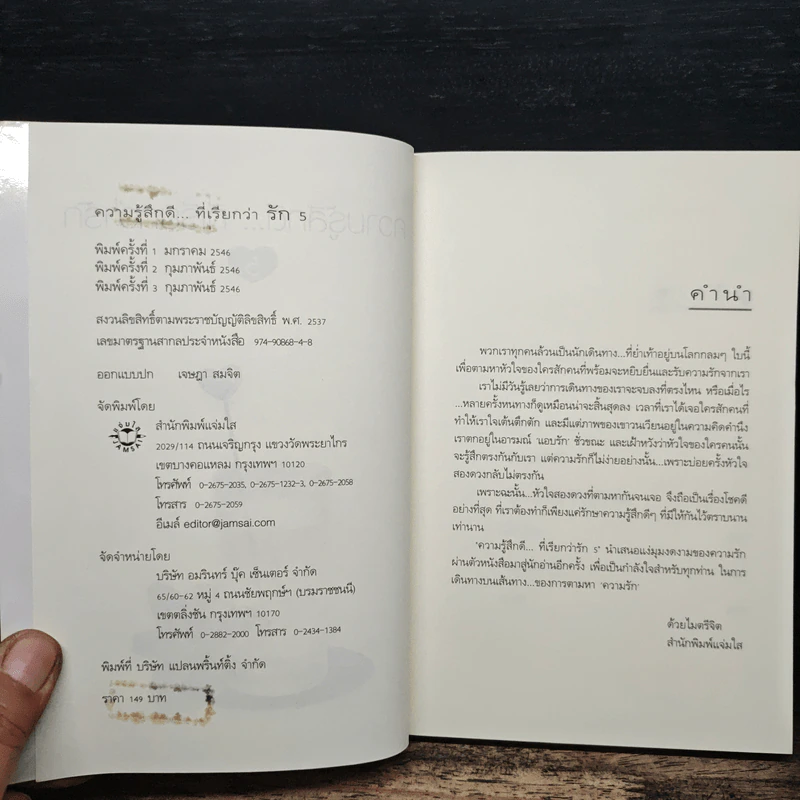 ความรู้สึกดี... ที่เรียกว่า รัก 5
พิมพ์ครั้งที่ 1 มกราคม 2546
พิมพ์ครั้งที่ 2 กุมภาพันธ์ 2546
พิมพ์ครั้งที่ 3 กุมภาพันธ์ 2546
สงวนลิขสิทธิ์ตามพระราชบัญญัติลิขสิทธิ์ พ.ศ. 2537
เลขมาตรฐานสากลประจำหนังสือ 974-90868-4-8
ออกแบบปก เจษฎา สมจิต
จัดพิมพ์โดย
แจ่มใส
JAMSAI
สำนักพิมพ์แจ่มใส
2029/114 ถนนเจริญกรุง แขวงวัดพระยาไกร
เขตบางคอแหลม กรุงเทพฯ 10120
โทรศัพท์ 0-2675-2035, 0-2675-1232-3, 0-2675-2058
โทรสาร 0-2675-2059
อีเมล์ editor@jamsai.com
จัดจำหน่ายโดย
บริษัท อมรินทร์ บุ๊ค เซ็นเตอร์ จำกัด
65/60-62 หมู่ 4 ถนนชัยพฤกษ์ฯ (บรมราชชนนี)
เขตตลิ่งชัน กรุงเทพฯ 10170
โทรศัพท์ 0-2882-2000 โทรสาร 0-2434-1384
พิมพ์ที่ บริษัท แปลนพริ้นท์ติ้ง จำกัด
ราคา 149 บาท
คำนำ
พวกเราทุกคนล้วนเป็นนักเดินทาง...ที่ย่ำเท้าอยู่บนโลกกลมๆ ใบนี้
เพื่อตามหาหัวใจของใครสักคนที่พร้อมจะหยิบยื่นและรับความรักจากเรา
เราไม่มีวันรู้เลยว่าการเดินทางของเราจะจบลงที่ตรงไหน หรือเมื่อไร
...หลายครั้งหนทางก็ดูเหมือนน่าจะสิ้นสุดลง เวลาที่เราได้เจอใครสักคนที่
ทำให้เราใจเต้นตึกตัก และมีแต่ภาพของเขาวนเวียนอยู่ในความคิดคำนึง
เราตกอยู่ในอารมณ์ 'แอบรัก' ชั่วขณะ และเฝ้าหวังว่าหัวใจของใครคนนั้น
จะรู้สึกตรงกันกับเรา แต่ความรักก็ไม่ง่ายอย่างนั้น...เพราะบ่อยครั้งหัวใจ
สองดวงกลับไม่ตรงกัน
เพราะฉะนั้น...หัวใจสองดวงที่ตามหากันจนเจอ จึงถือเป็นเรื่องโชคดี
อย่างที่สุด ที่เราต้องทำก็เพียงแค่รักษาความรู้สึกดีๆ ที่มีให้กันไว้ตราบนาน
เท่านาน
'ความรู้สึกดี... ที่เรียกว่ารัก 5' นำเสนอแง่มุมงดงามของความรัก
ผ่านตัวหนังสือมาสู่นักอ่านอีกครั้ง เพื่อเป็นกำลังใจสำหรับทุกท่าน ในการ
เดินทางบนเส้นทาง...ของการตามหา 'ความรัก'
ด้วยไมตรีจิต
สำนักพิมพ์แจ่มใส